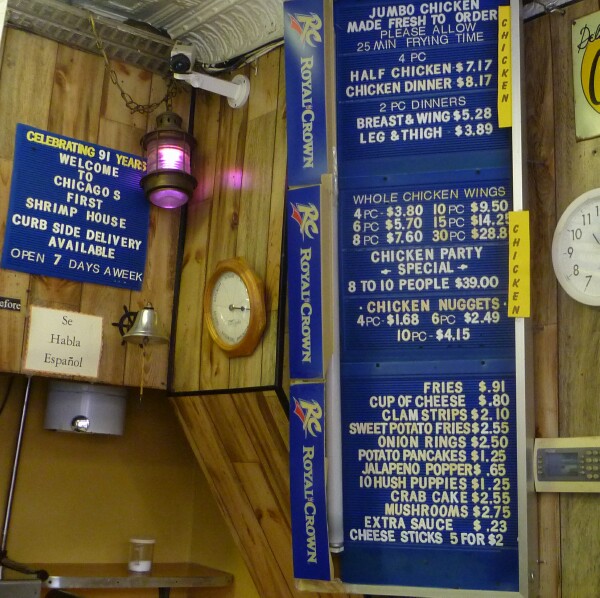 CELEBRATING 91 YEARS
WELCOME
TO
CHICAGO S
FIRST
SHRIMP HOUSE
CURB SIDE DELIVERY
AVAILABLE
OPEN 7 DAYS A WEEK
efore
Se
Habla
Español
RC
ROYAL CROWN
RC
ROYAL CROWN
RC
ROYAL CROWN
JUMBO CHICKEN
MADE FRESH TO ORDER
PLEASE ALLOW
25 MIN FRYING TIME
4 PC
HALF CHICKEN $7.17
CHICKEN DINNER $8.17
2 PC DINNERS
BREAST & WING $5.28
LEG & THIGH - $3.89
CHICKEN
WHOLE CHICKEN WINGS
4 PC - $3.80 10 PC $9.50
6 PC $5.70 15 PC $14.25
8 PC $7.60 30 PC $28.8
CHICKEN PARTY
- SPECIAL -
8 TO 10 PEOPLE $39.00
CHICKEN
· CHICKEN NUGGETS ·
4 PC - $1.68 6 PC $2.49
10 PC - $4.15
FRIES $.91
CUP OF CHEESE $.80
CLAM STRIPS $2.10
SWEET POTATO FRIES $2.55
ONION RINGS $2.50
POTATO PANCAKES $1.25
JALAPENO POPPER $ .65
10 HUSH PUPPIES $1.25
CRAB CAKE $2.55
MUSHROOMS $2.75
EXTRA SAUCE $ .23
CHEESE STICKS 5 FOR $2
12
11
10
9
8
7